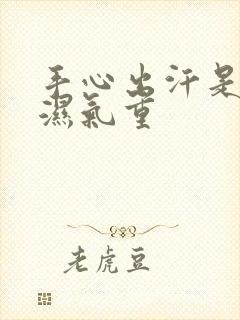 手心出汗是
濕氣重
老虎豆